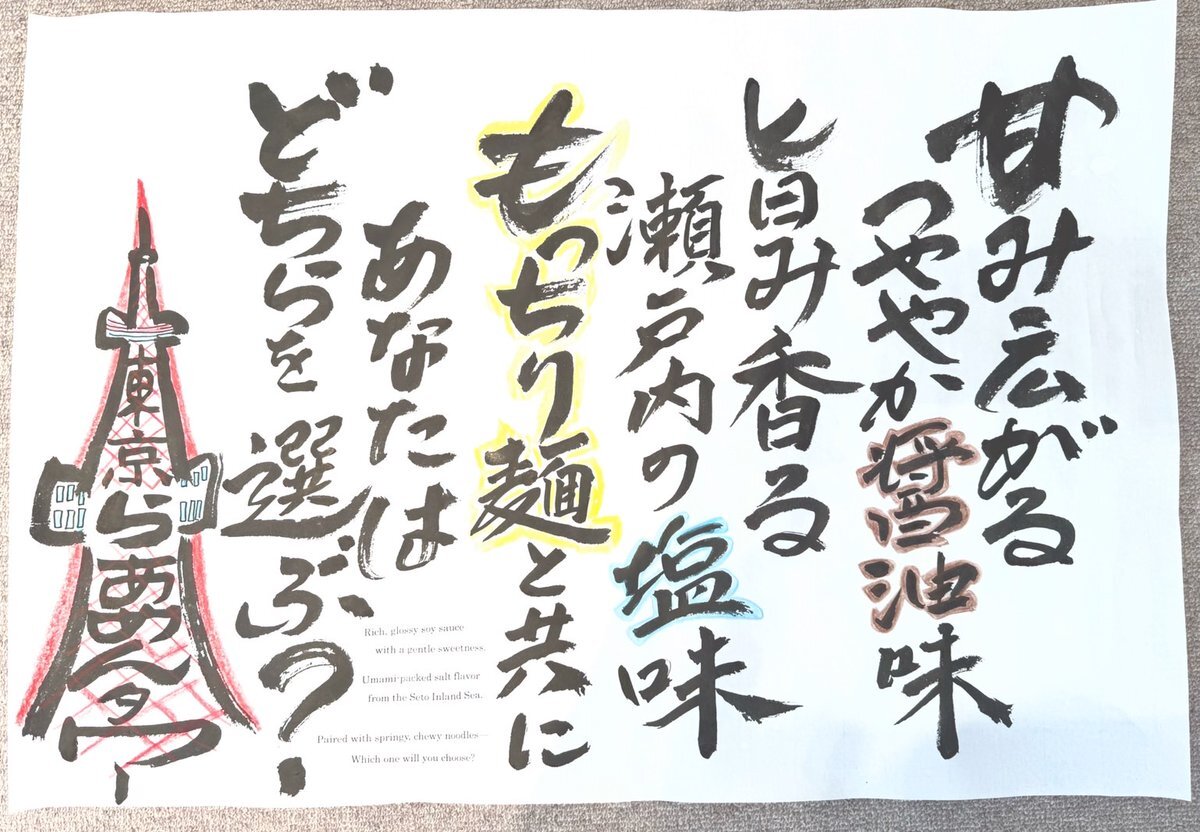 甘み広がる
つややか醤油味
旨み香る
瀬戸内の塩味
もっちり麺と共に
あなたは
どちらを選ぶ?
東京らあめんタワー
Rich, glossy soy sauce
with a gentle sweetness.
Umami-packed salt flavor
from the Seto Inland Sea.
Paired with springy, chewy noodles—
Which one will you choose?